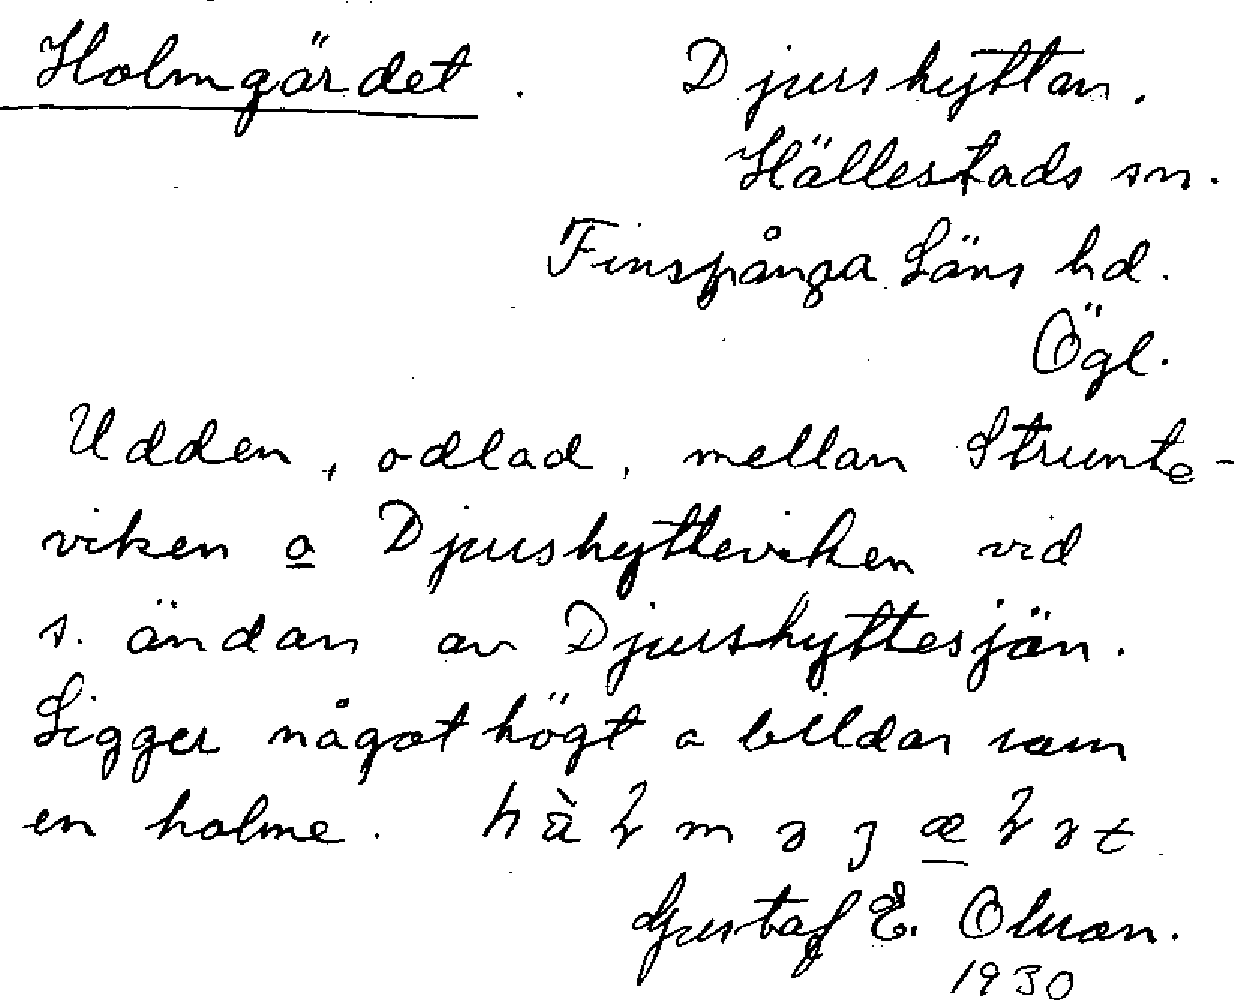 Holmgärdet. Djurshyttan.
Hällestads sn.
Finspånga Läns hd.
Ögl.
Udden, odlad, mellan Strunte-
viken o Djurshytteviken vid
s. ändan av Djurshyttesjön.
Ligger något högt o bildar som
en holme.
Gustaf E. Olson.
1930